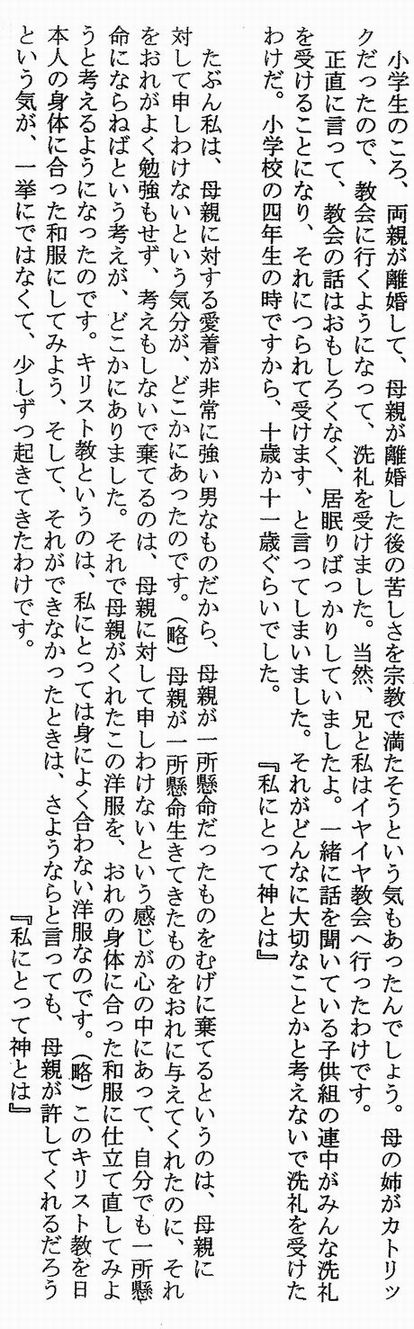 小学生のころ、両親が離婚して、母親が離婚した後の苦しさを宗教で満たそうという気もあったんでしょう。母の姉がカトリッ
クだったので、教会に行くようになって、洗礼を受けました。当然、兄と私はイヤイヤ教会へ行ったわけです。
正直に言って、教会の話はおもしろくなく、居眠りばっかりしていましたよ。一緒に話を聞いている子供組の連中がみんな洗礼
を受けることになり、それにつられて受けます、と言ってしまいました。それがどんなに大切なことかと考えないで洗礼を受けた
わけだ。小学校の四年生の時ですから、十歳か十一歳ぐらいでした。
『私にとって神とは』
たぶん私は、母親に対する愛着が非常に強い男なものだから、母親が一所懸命だったものをむげに棄てるというのは、母親に
対して申しわけないという気分が、どこかにあったのです。（略）母親が一所懸命生きてきたものをおれに与えてくれたのに、それ
をおれがよく勉強もせず、考えもしないで棄てるのは、母親に対して申しわけないという感じが心の中にあって、自分でも一所懸
命にならねばという考えが、どこかにありました。それで母親がくれたこの洋服を、おれの身体に合った和服に仕立て直してみよ
うと考えるようになったのです。キリスト教というのは、私にとっては身によく合わない洋服なのです。（略）このキリスト教を日
本人の身体に合った和服にしてみよう、そして、それができなかったときは、さようならと言っても、母親が許してくれるだろう
という気が、一挙にではなくて、少しずつ起きてきたわけです。
『私にとって神とは』